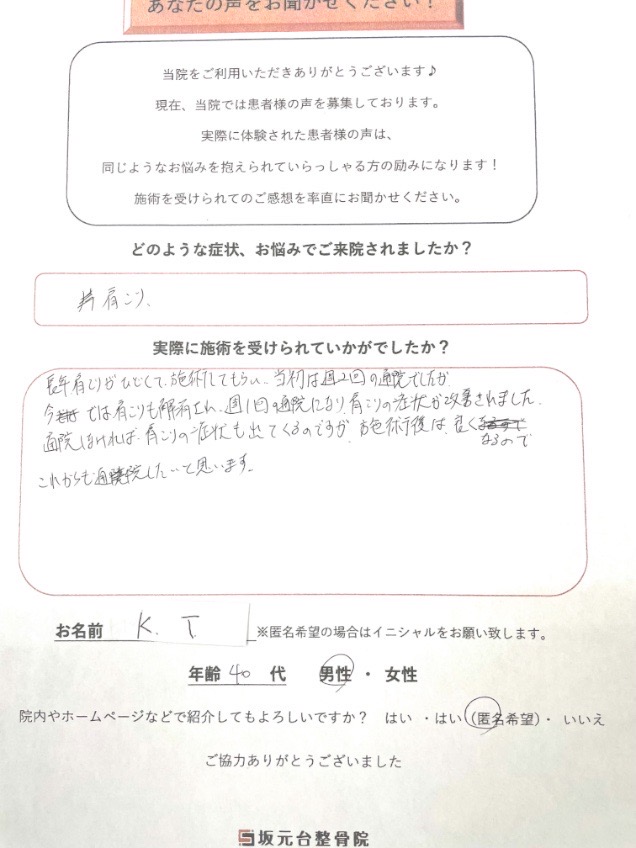 あなたの声をお聞かせください！
当院をご利用いただきありがとうございます♪
現在、当院では患者様の声を募集しております。
実際に体験された患者様の声は、
同じようなお悩みを抱えられていらっしゃる方の励みになります！
施術を受けられてのご感想を率直にお聞かせください。
どのような症状、お悩みでご来院されましたか？
肩こり、
実際に施術を受けられていかがでしたか？
長年肩こりがひどくて、施術してもらい、当初は週2回の通院でしたが
今では肩こりも解消され、週1回の通院になり、肩こりの症状が改善されました。
通院しなければ、肩こりの症状も出てくるのですが、施術後は、良く
なるので
これからも通院したいと思います。
お名前 K. T. ※匿名希望の場合はイニシャルをお願い致します。
年齢 40 代 男性 ・ 女性
院内やホームページなどで紹介してもよろしいですか？ はい ・はい（匿名希望）・ いいえ
ご協力ありがとうございました
坂元台整骨院